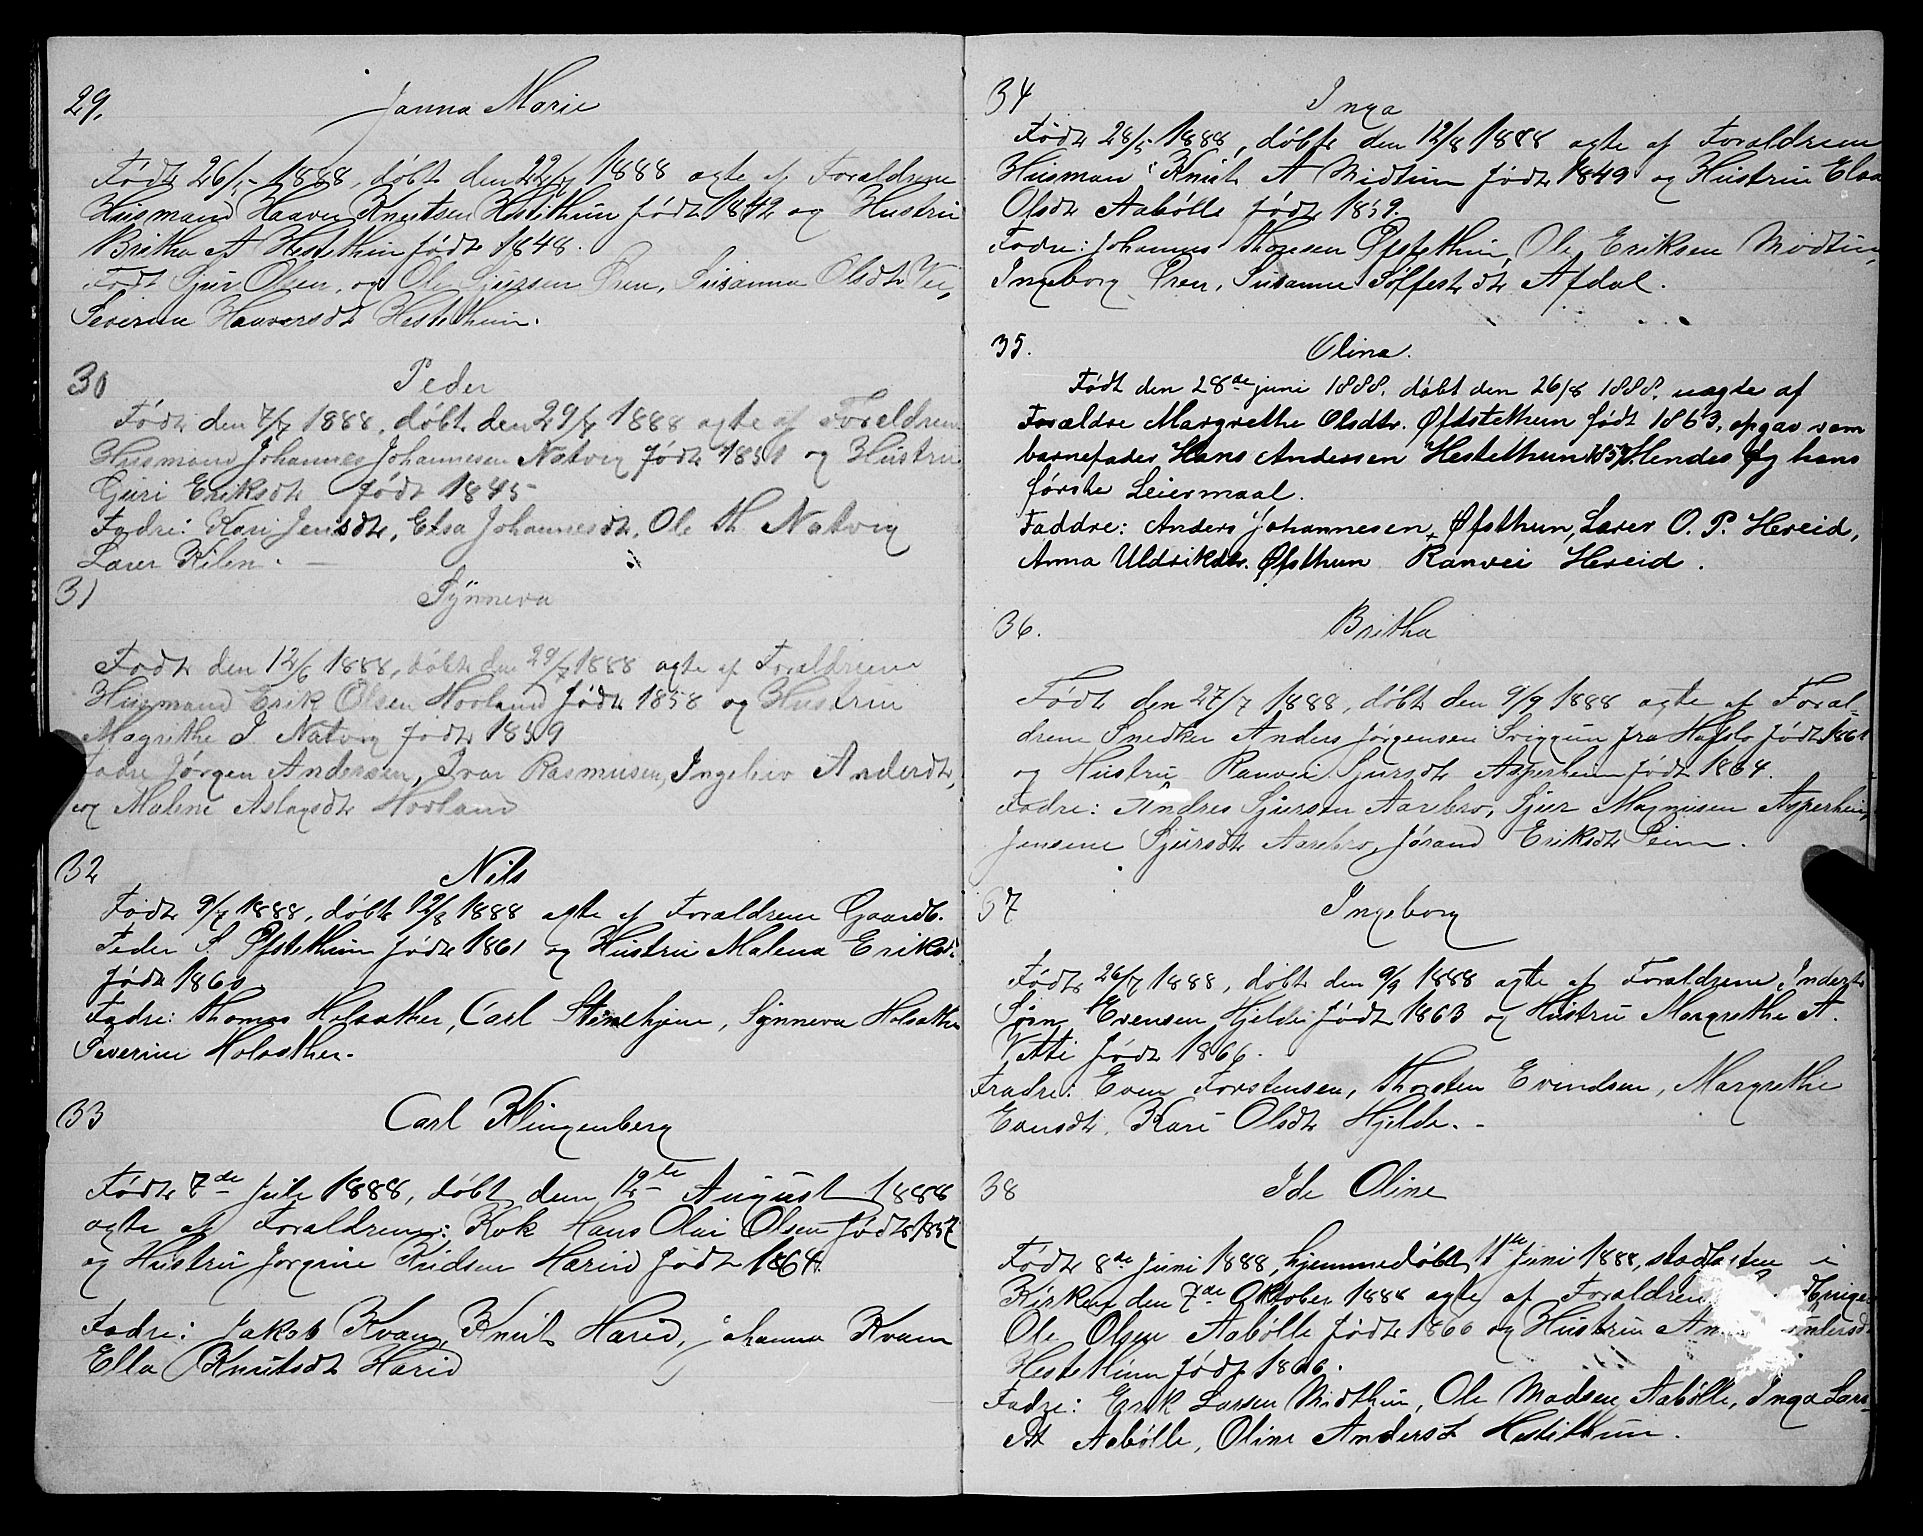 29.
Janna Marie
Født 26/5 1888, døbt den 22/7 1888 ægte af Forældrene
Husmand Haaver Knutsen Hestethun født 1842 og Hustru
Britha A Hestethun født 1848.
Fadr Sjur Olsen, og Ole Sjursen Øren, Susanna Olsdt Vee,
Severine Haaversdt Hestethun.
30
Peder
Født den 7/7 1888, døbt den 29/7 1888 ægte af Forældrene
Husmand Johannes Johannesen Natvig født 1851 og Hustru
Guri Eriksdt født 1845
Fadre: Kari Jensdt, Elsa Johannesdt, Ole Th. Natvig
Lærer Kilen.
31
Synneva
Født den 12/6 1888, døbt den 29/7 1888 ægte af Forældrene
Husmand Erik Olsen Hovland født 1858 og Hustrue
Magrithe J. Natvig født 1859
Fadre Jørgen Andersen, Ivar Rasmusen, Ingebor Anderdt,
og Malene Aslagsdt Hovland
32
Nils
Født 9/7 1888, døbt 12/8 1888 ægte af Forældrene Gaardb.
Peder S Øfstethun født 1861 og Hustru Malena Eriksd.
født 1860
Fadre: Thomas Holsæther, Carl Stenehjem, Synneva Holsæther
Severine Holsæther.
33
Carl Klingenberg
Født 7de Juli 1888, døbt den 12te August 1888
ægte af Forældrene: Kok Hans Olai Olsen født 1857
og Hustru Jorgine Knidsen Hæreid født 1864.
Fadre: Jakob Kvam, Knut Hæreid, Johanna Kvam
Ella Knutsdt Hæreid
34
Inga
Født 28/5 1888, døbt den 12/8 1888 ægte af Forældrene
Husman Knut A Midtun født 1849 og Hustru Elsa
Olsdt Aabølle født 1859.
Fadre: Johannes Thomesen Øfstethun, Ole Eriksen Midtun,
Ingeborg Øren, Susanne Sølfestdt Afdal.
35.
Olina.
Født den 28de juni 1888. døbt den 26/8 1888. uægte af
Forældre Margrethe Olsdtr. Øfdstethun født 1863, opgav som
barnefader Hans Andersen Hestethun 1857. Hendes og hans
første Leiermaal.
Faddre: Anders Johannesen, Øfsthun, Lærer O. P. Hereid,
Anna Uldriksdr. Øfsthun Ranvei Hereid.
36.
Britha
Født den 27/7 1888, døbt den 9/9 1888 ægte af Foræl-
drene Snedker Anders Jørgensen Sviggun fra Hafslo født 1861
og Hustru Ranvei Sjursdt Asperheim født 1864.
Fadre: Andres Sjursen Aarebro, Sjur Magnusen Asperheim,
Jensine Sjursdt Aarebro, Jørand Eriksdt Seim.
37
Ingeborg
Født 26/7 1888, døbt den 9/9 1888 ægte af Forældrene Inderst
Søn Evensen Hjelde født 1863 og Hustru Margrethe A.
Vetti født 1866.
Fradre: Even Torstensen, Thorsten Evindsen, Margrethe
Evensdt, Kari Olsdt Hjelde.
38
Ide Oline
Født 8de Juni 1888, hjemmedøbt 11te Juni 1888, stadfæsten i
Kirken den 7de Oktober 1888 ægte af Forældren
Ole Olsen Aabølle født 1860 og Hustru
Hestethun født 1866.
Fadre: Erik Larsen Midthun, Ole Madsen Aabølle, Inga Lars-
dt Aabølle, Oline Andersdt Hestethun.